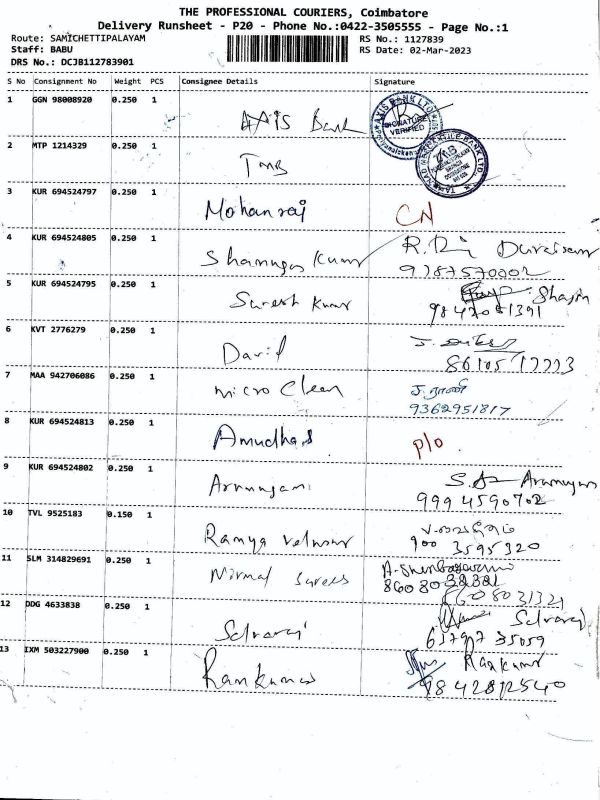 THE PROFESSIONAL COURIERS, Coimbatore
Delivery Runsheet - P20 - Phone No.:0422-3505555 - Page No.:1
Route: SAMICHETTIPALAYAM RS No.: 1127839
Staff: BABU RS Date: 02-Mar-2023
DRS No.: DCJB112783901
S No Consignment No Weight PCS Consignee Details Signature
1 GGN 98008920 0.250 1 AXIS Bank
AXIS BANK LTD
SIGNATURE VERIFIED
2 MTP 1214329 0.250 1 TMB
TAMILNAD MERCANTILE BANK LTD
TMB
3 KUR 694524797 0.250 1 Mohanraj CN
4 KUR 694524805 0.250 1 Shanmuga Kumar
9787570002
5 KUR 694524795 0.250 1 Suresh Kumar
9842051391
6 KVT 2776279 0.250 1 David
7 MAA 942706086 0.250 1 micro Clean J. ராணி
9362951817
8 KUR 694524813 0.250 1 Amudhas P/O
9 KUR 694524802 0.250 1 Arumugam
9994590702
10 TVL 9525183 0.150 1 Ramya
900 3595320
11 SLM 314829691 0.250 1 Nirmal
8608031321
12 DDG 4633838 0.250 1 Selvaraj Selvaraj
13 IXM 503227900 0.250 1 Ramkumar Ramkumar